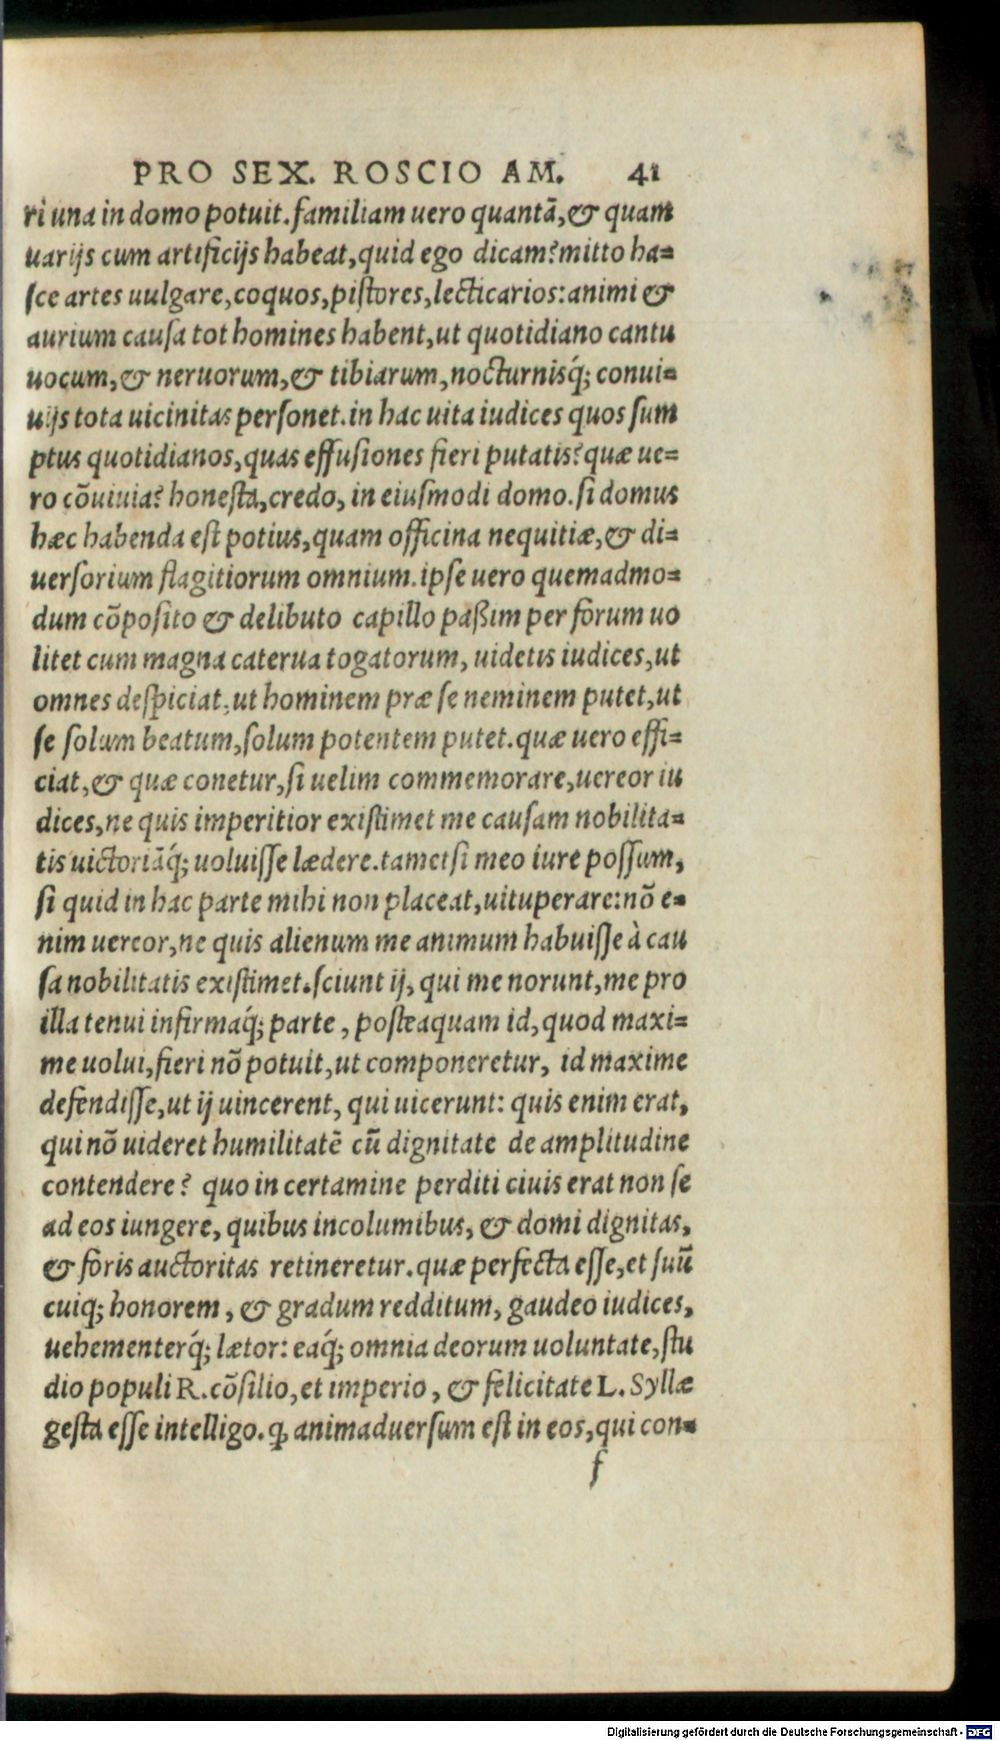 PRO SEX. ROSCIO AM. 41
ri una in domo potuit. familiam uero quantã, & quam
uarijs cum artificijs habeat, quid ego dicam? mitto ha=
ſce artes uulgare, coquos, piſtores, lecticarios: animi &
aurium cauſa tot homines habent, ut quotidiano cantu
uocum, & neruorum, & tibiarum, nocturnisq́; conui=
uijs tota uicinitas perſonet. in hac uita iudices quos ſum
ptus quotidianos, quas effuſiones fieri putatis? quæ ue=
ro cõuiuia? honeſta, credo, in eiuſmodi domo. ſi domus
hæc habenda eſt potius, quam officina nequitiæ, & di=
uerſorium flagitiorum omnium. ipſe uero quemadmo=
dum cõpoſito & delibuto capillo paßim per forum uo
litet cum magna caterua togatorum, uidetis iudices, ut
omnes deſpiciat, ut hominem præ ſe neminem putet, ut
ſe ſolum beatum, ſolum potentem putet. quæ uero effi=
ciat, & quæ conetur, ſi uelim commemorare, uereor iu
dices, ne quis imperitior exiſtimet me cauſam nobilita=
tis uictoriãq́; uoluiſſe lædere. tametſi meo iure poſſum,
ſi quid in hac parte mihi non placeat, uituperare: nõ e=
nim uereor, ne quis alienum me animum habuiſſe à cau
ſa nobilitatis exiſtimet. ſciunt ij, qui me norunt, me pro
illa tenui infirmaq́; parte, poſteaquam id, quod maxi=
me uolui, fieri nõ potuit, ut componeretur, id maxime
defendiſſe, ut ij uincerent, qui uicerunt: quis enim erat,
qui nõ uideret humilitatẽ cũ dignitate de amplitudine
contendere? quo in certamine perditi ciuis erat non ſe
ad eos iungere, quibus incolumibus, & domi dignitas,
& foris auctoritas retineretur. quæ perfecta eſſe, et ſuũ
cuiq; honorem, & gradum redditum, gaudeo iudices,
uehementerq́; lætor: eaq́; omnia deorum uoluntate, ſtu
dio populi R. cõſilio, et imperio, & felicitate L. Syllæ
geſta eſſe intelligo. ꝙ animaduerſum eſt in eos, qui con=
f
Digitalisierung gefördert durch die Deutsche Forschungsgemeinschaft - DFG